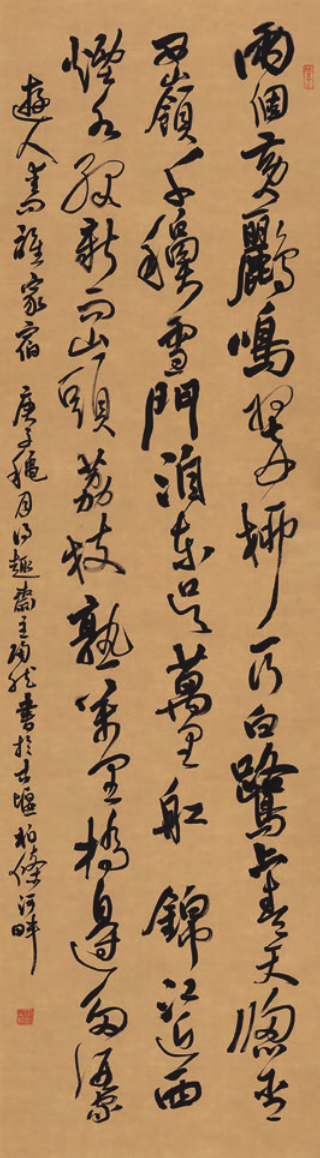 兩個黃鸝鳴翠柳一行白鷺上青天窗含
西嶺千穐雪門泊東吳萬里船錦江近西
煙水綠新雨山頭荔枝熟萬里橋邊多酒家
遊人愛誰家宿 庚子穐月得趣齋主陶然書於古堰柏條河畔